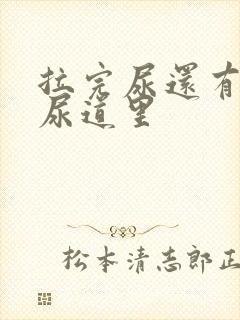 拉完尿還有
尿道里
松本清志郎正